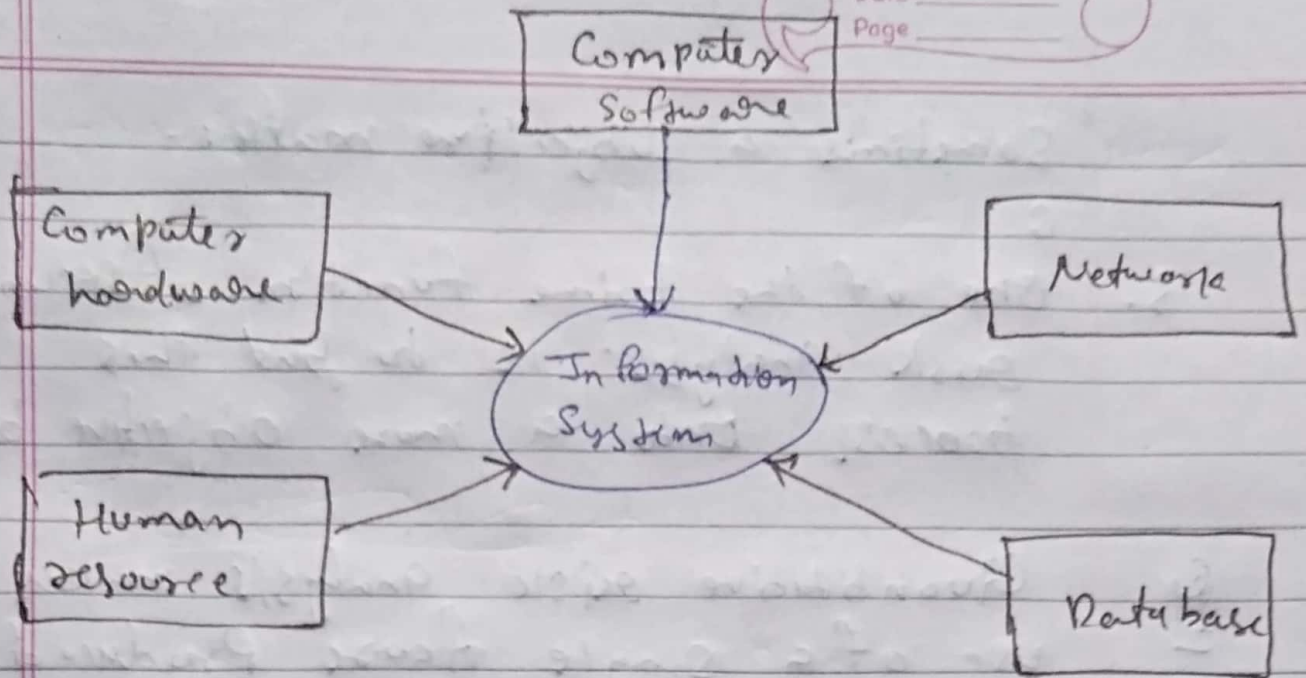 Page
Computer
Software
Computer
hardware
Network
Information
System
Human
resource
Database